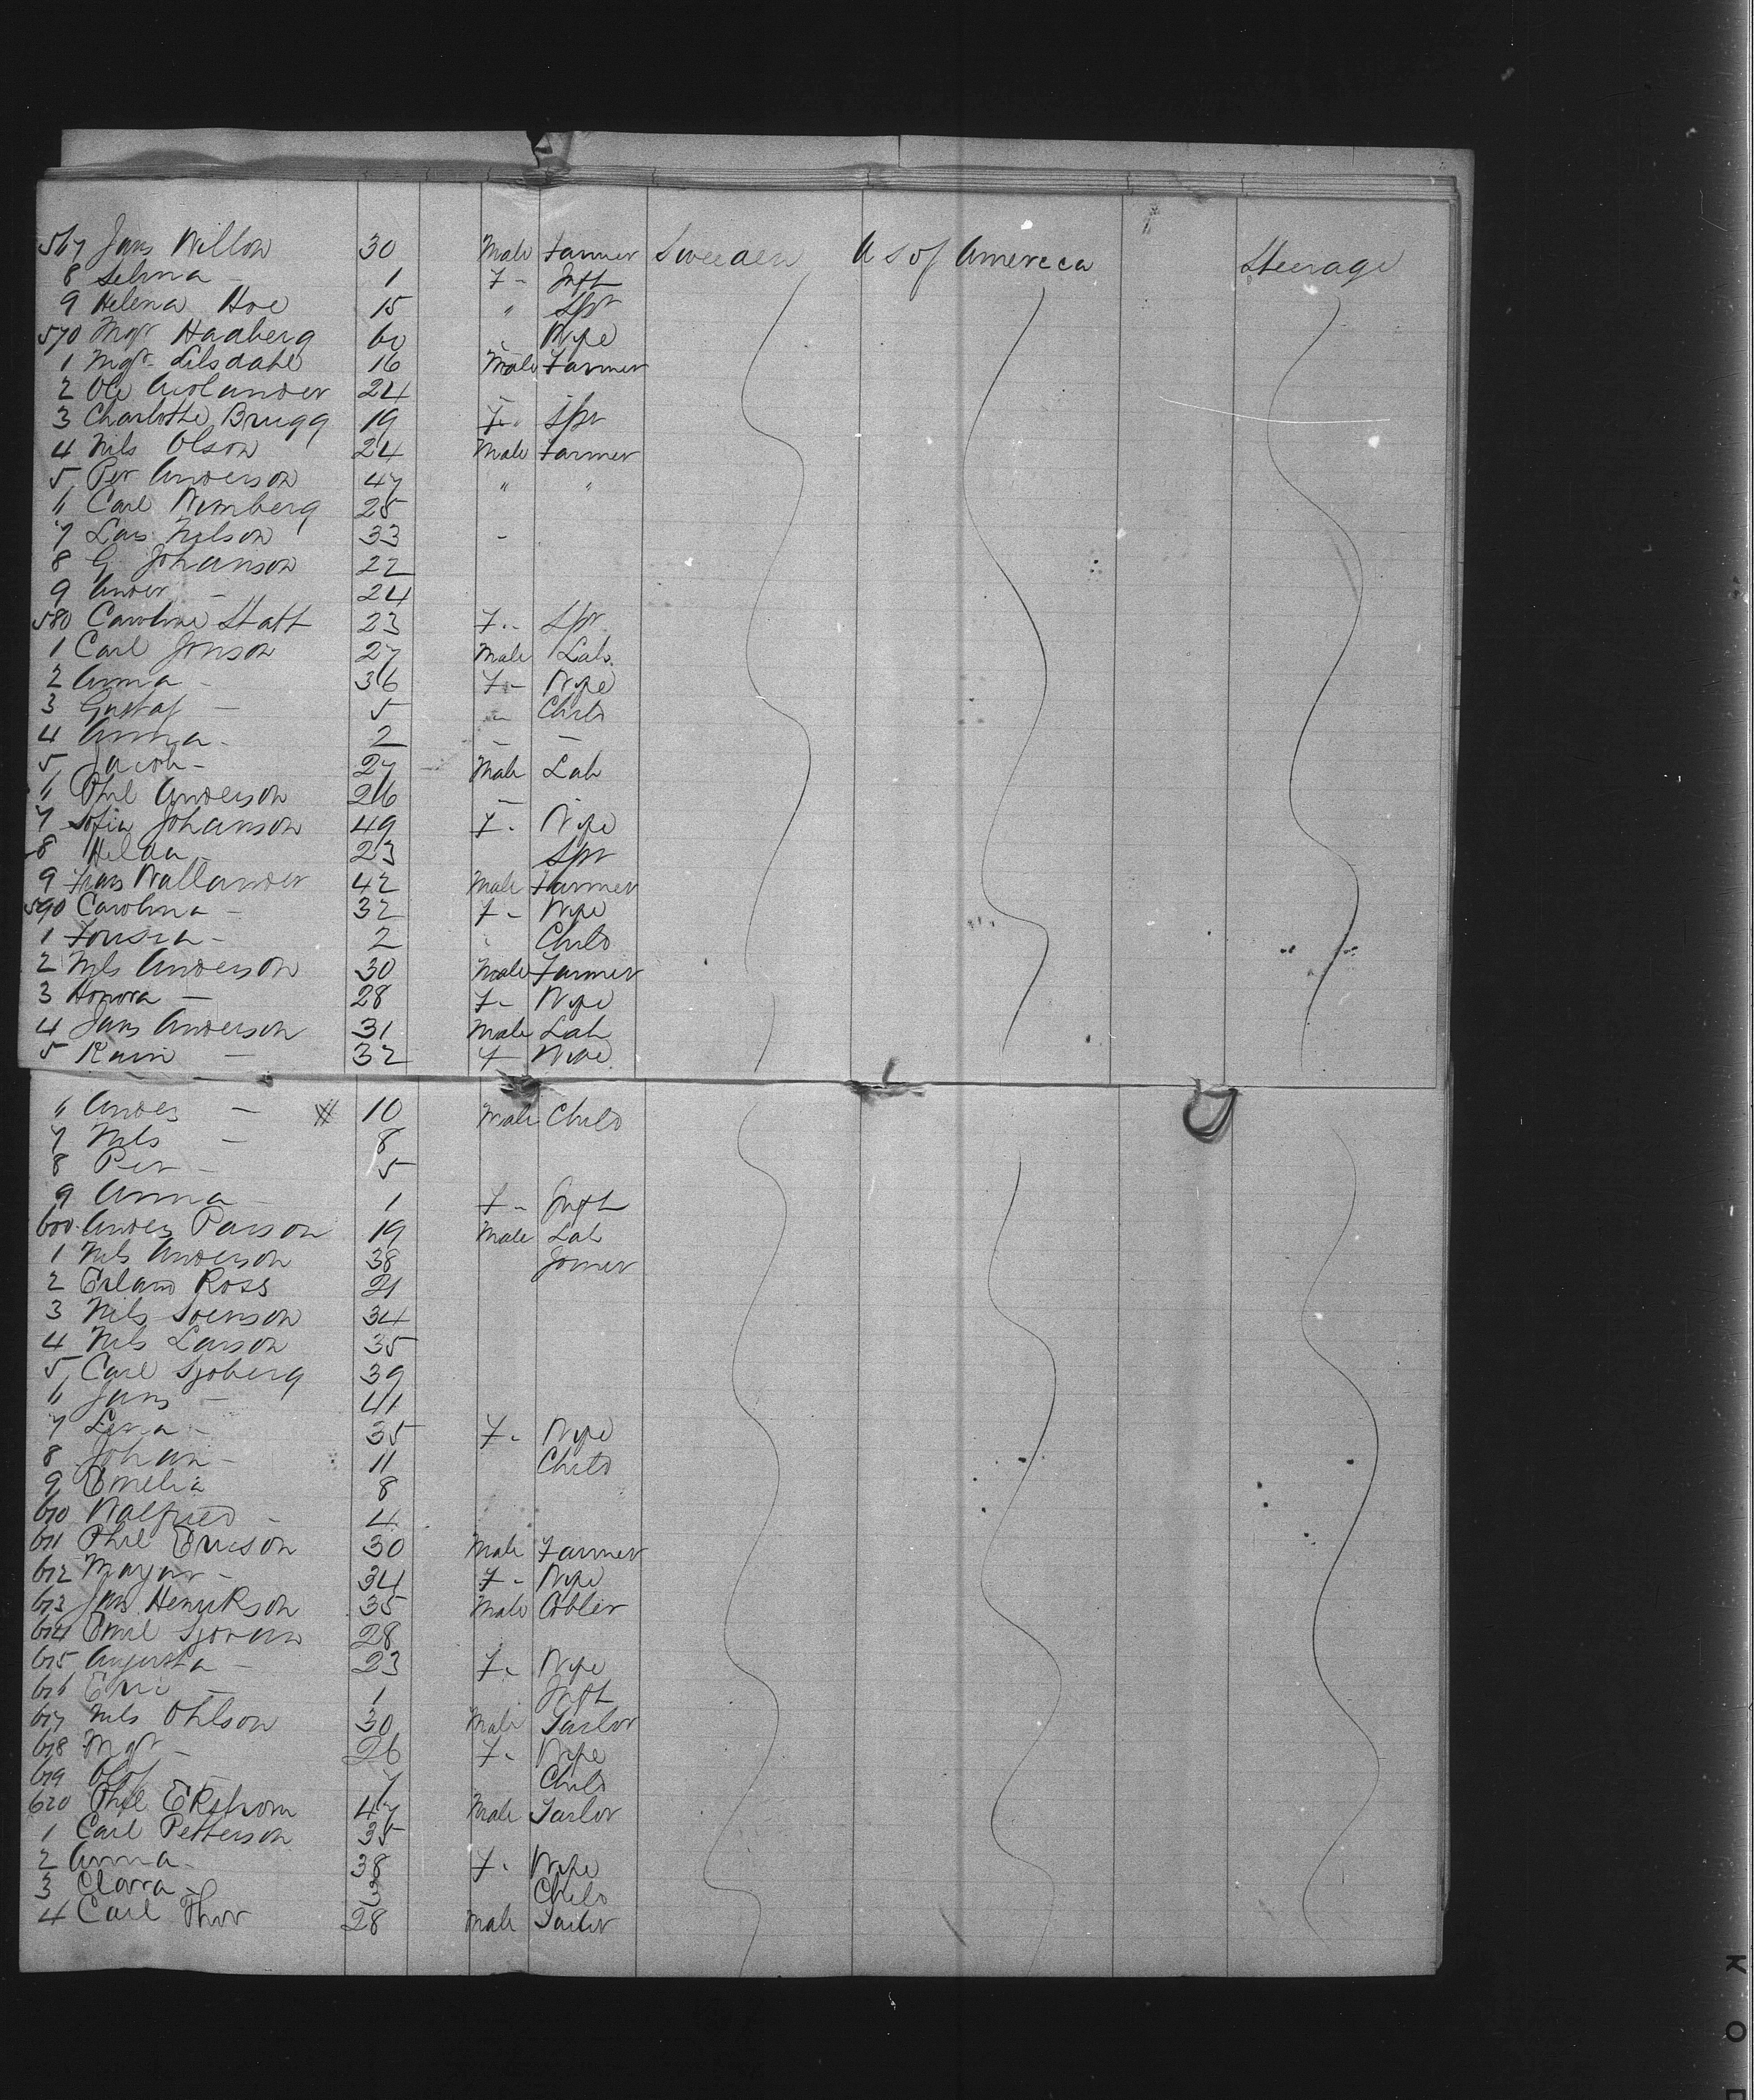 567 Jans Willow 30 Male Farmer Sweeden U S of America Steerage
8 Selma - 1 F - Inft
9 Helena Hoe 15 " Spr
570 Mgt Hadberg 60 Wife
1 Mgt Lilsdahl 16 Male Farmer
2 Ole 24 -
3 Charlotte Brugg 19 F - Spr
4 Nils Olson 24 Male Farmer
5 Per Anderson 47 " "
6 Carl Wimberg 25
7 Lars Nilson 33 -
8 G Johanson 22
9 Ander - 24
580 Caroline Statt 23 F - Spr
1 Carl Jonson 27 Male Lab
2 Anna - 36 F - Wife
3 Gustaf - 5 - Child
4 Anna - 2 - -
5 Jacob - 27 Male Lab
6 Phil Anderson 26 -
7 Sofia Johanson 49 F - Wife
8 Hilda - 23 Spr
9 Frans Wallander 42 Male Farmer
590 Carolina - 32 F - Wife
1 - 2 " Child
2 Nils Anderson 30 Male Farmer
3 Honora - 28 F - Wife
4 Jans Anderson 31 Male Lab
5 Karin - 32 F Wife
6 Andes - 10 Male Child
7 Nils - 8
8 Per - 5
9 Anna - 1 F - Inft
600 Andes Parson 19 Male Lab
1 Nils Anderson 38 Joiner
2 Erland Ross 21
3 Nils Svenson 34
4 Nils Larson 35
5 Carl Sjoberg 39
6 Jans - 41
7 Lena - 35 F - Wife
8 Johan - 11 Child
9 Emelia 8
610 Walfried - 4
611 Phil Ericson 30 Male Farmer
612 - 34 F - Wife
613 Jans Henrikson 35 Male Cobler
614 Emil 28
615 Augusta - 23 F - Wife
616 Eric - 1 Inft
617 Nils Ohlson 30 Male Tailor
618 Mgt - 26 F - Wife
619 Olof - 7 Child
620 Phil Ekstrom 47 Male Tailor
1 Carl Petterson 35
2 Anna - 38 F - Wife
3 Clara - Child
4 Carl Thor 28 Male Tailor
K O